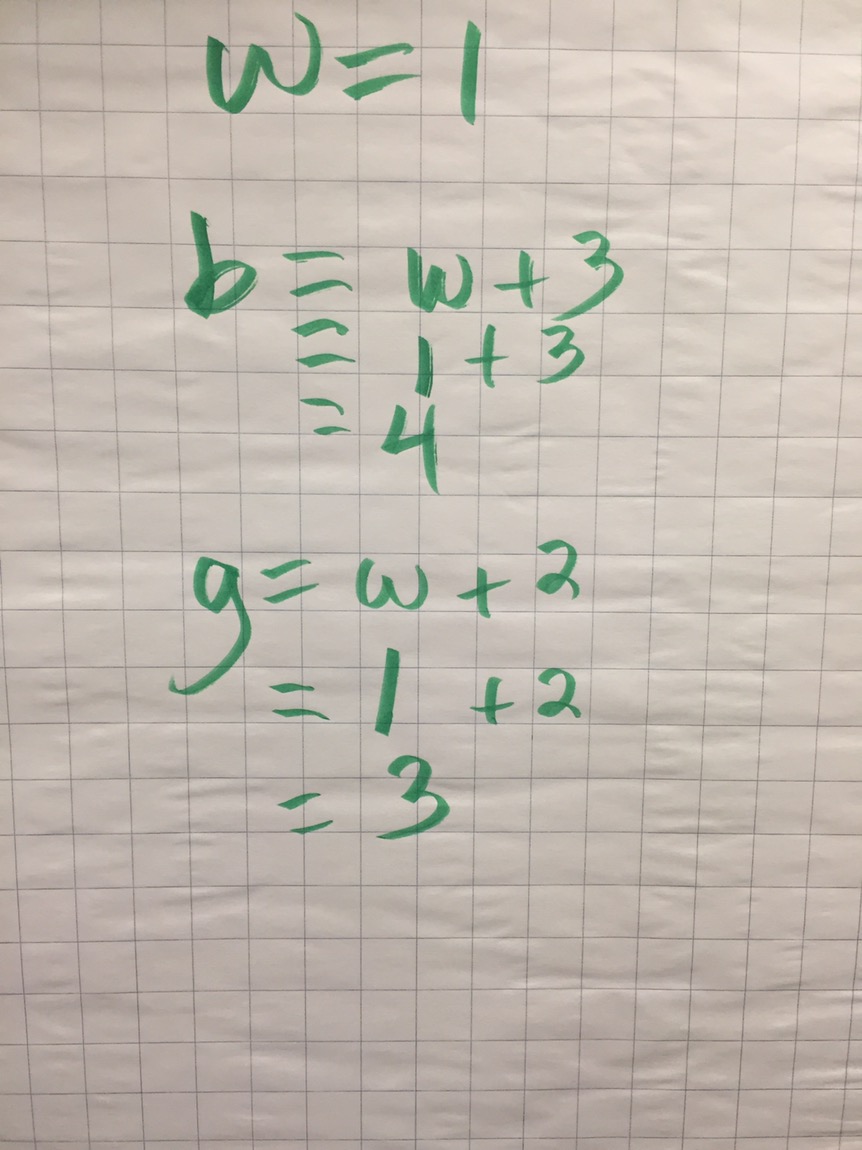 w = 1
b = w + 3
= 1 + 3
= 4
g = w + 2
= 1 + 2
= 3